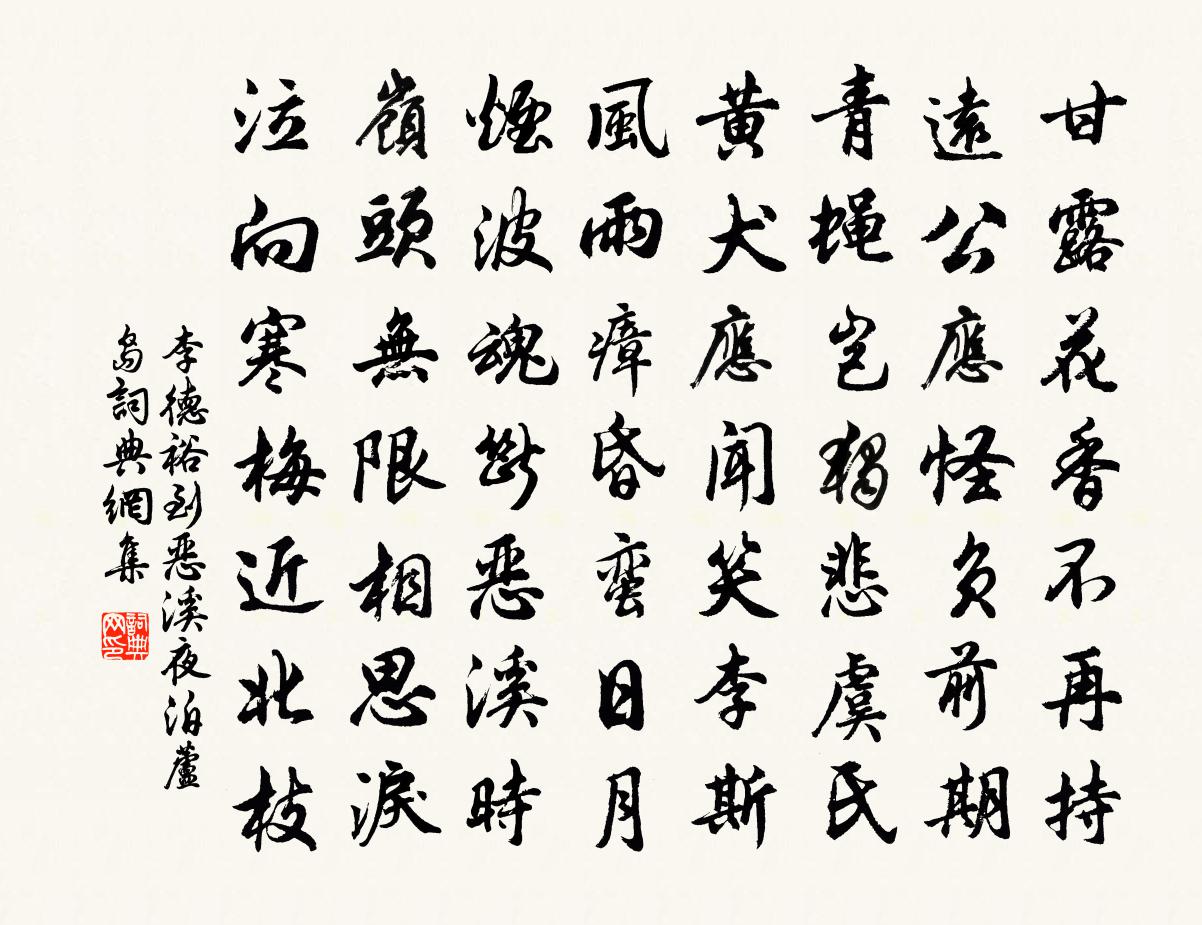 甘露花香不再持
遠公應怪負前期
青蠅豈獨悲虞氏
黃犬應聞笑李斯
風雨瘴昏蠻日月
煙波魂斷惡溪時
嶺頭無限相思淚
泣向寒梅近北枝
李德裕到惡溪夜泊蘆
島詞典網集
詞典
网印